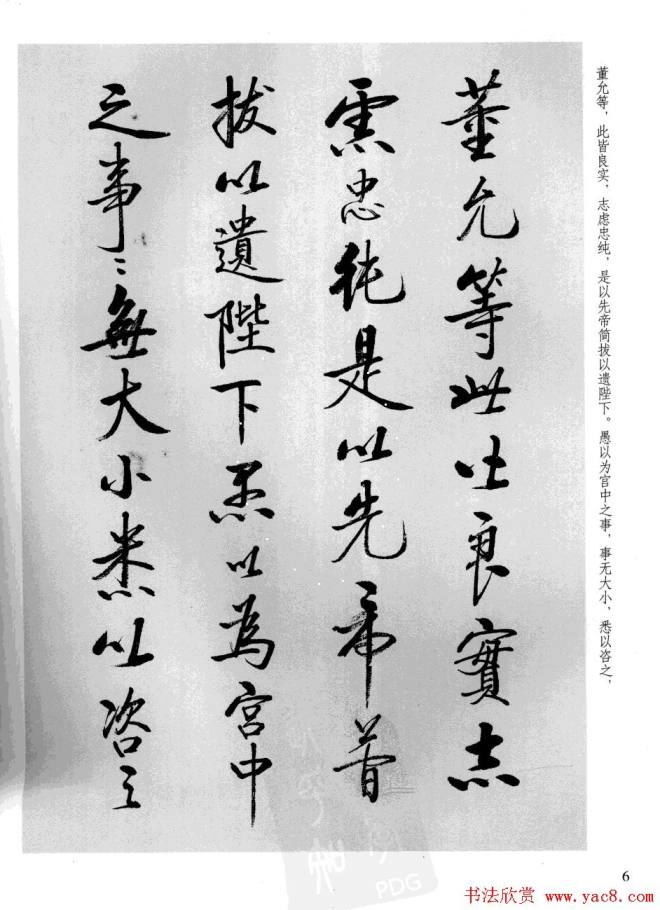 董允等此皆良實志
慮忠純是以先帝簡
拔以遺陛下愚以為宮中
之事〻無大小悉以咨之
董允等,此皆良实,志虑忠纯,是以先帝简拔以遗陛下。愚以为宫中之事,事无大小,悉以咨之,
6
PDG
书法欣赏 www.yac8.com